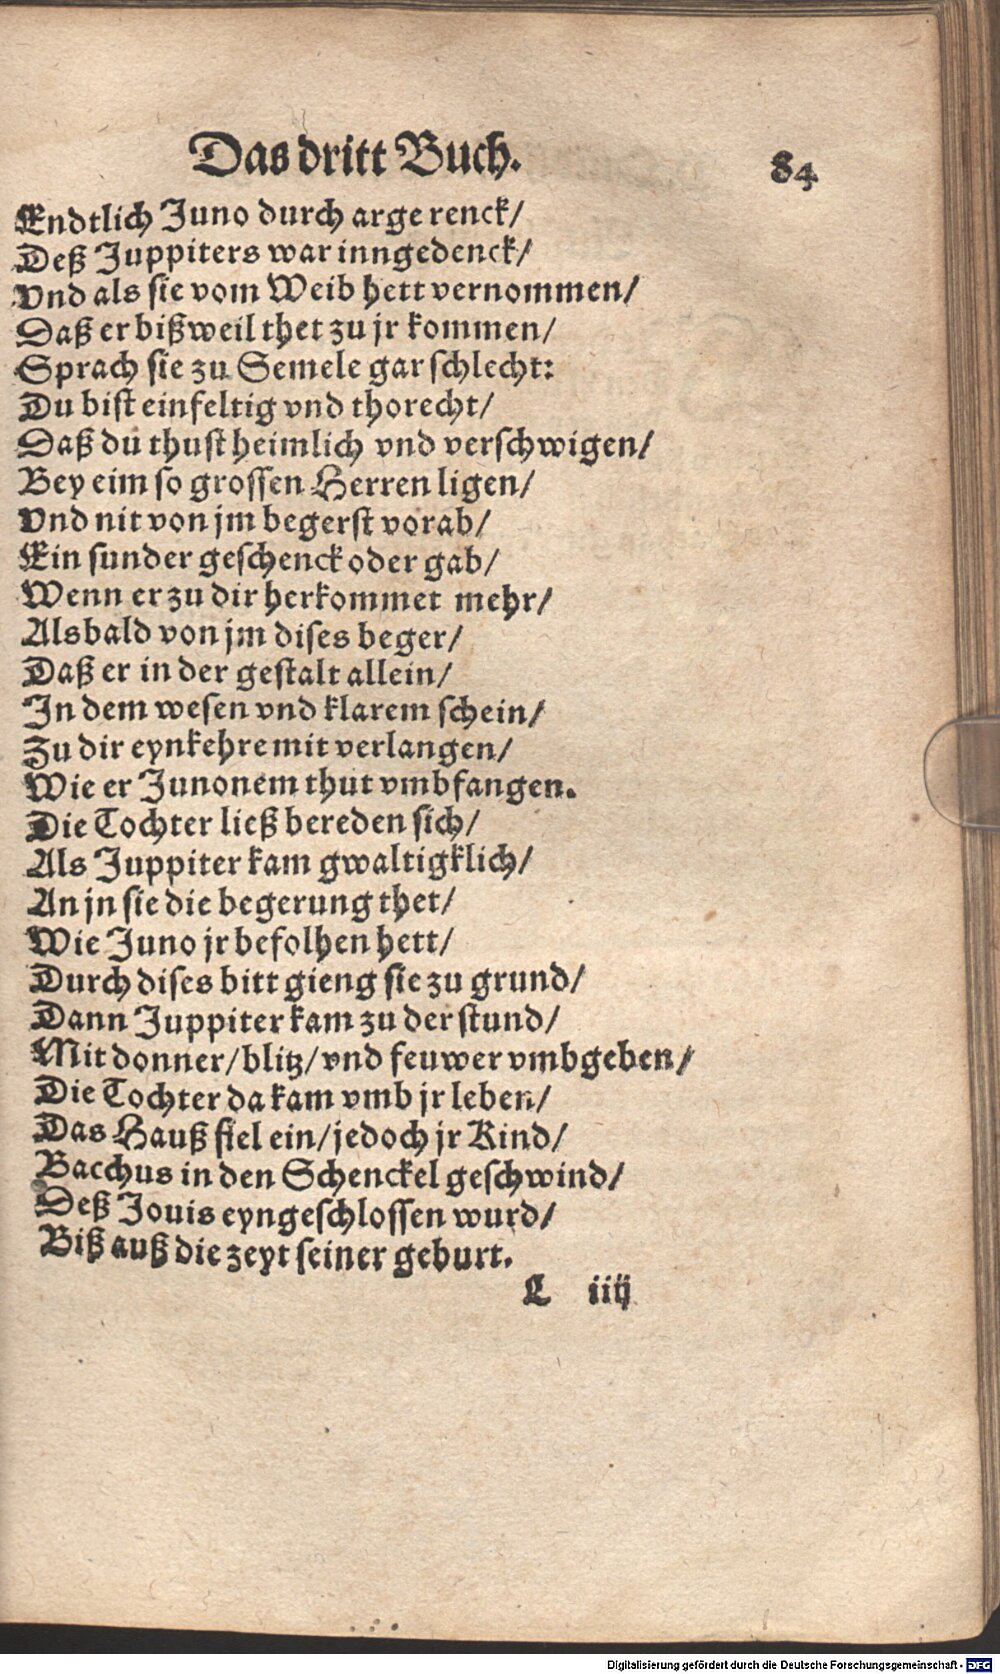 Das dritt Buch.
84
Endtlich Juno durch arge renck/
Deß Juppiters war inngedenck/
Vnd als sie vom Weib hett vernommen/
Daß er bißweil thet zu jr kommen/
Sprach sie zu Semele gar schlecht:
Du bist einfeltig vnd thorecht/
Daß du thust heimlich vnd verschwigen/
Bey eim so grossen Herren ligen/
Vnd nit von jm begerst vorab/
Ein sunder geschenck oder gab/
Wenn er zu dir herkommet mehr/
Alsbald von jm dises beger/
Daß er in der gestalt allein/
In dem wesen vnd klarem schein/
Zu dir eynkehre mit verlangen/
Wie er Junonem thut vmbfangen.
Die Tochter ließ bereden sich/
Als Juppiter kam gwaltigklich/
An jn sie die begerung thet/
Wie Juno jr befolhen hett/
Durch dises bitt gieng sie zu grund/
Dann Juppiter kam zu der stund/
Mit donner/blitz/vnd feuwer vmbgeben/
Die Tochter da kam vmb jr leben/
Das Hauß fiel ein/jedoch jr Kind/
Bacchus in den Schenckel geschwind/
Deß Jouis eyngeschlossen wurd/
Biß auß die zeyt seiner geburt.
L iiij
Digitalisierung gefördert durch die Deutsche Forschungsgemeinschaft - DFG